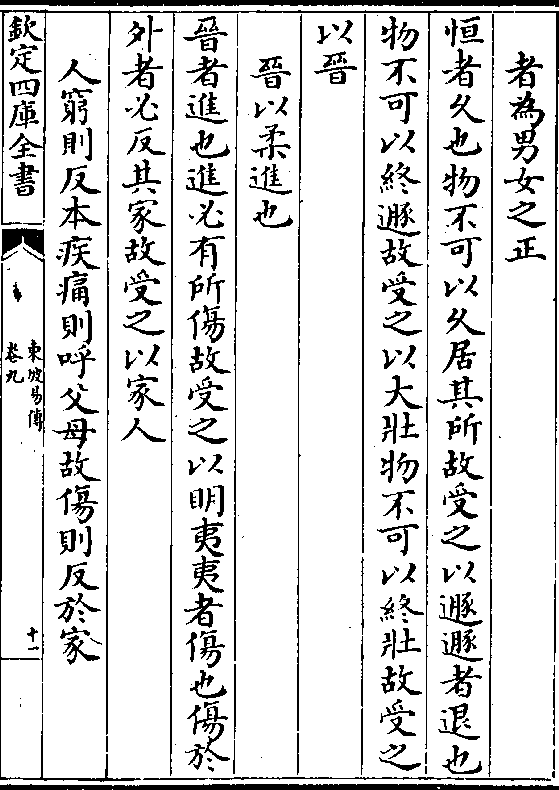 者為男女之正
恒者久也物不可以久居其所故受之以遯遯者退也
物不可以終遯故受之以大壯物不可以終壯故受之
以晉
晉以柔進也
晉者進也進必有所傷故受之以明夷夷者傷也傷於
外者必反其家故受之以家人
人窮則反本疾痛則呼父母故傷則反於家
欽定四庫全書
東坡易傳
卷九
十一